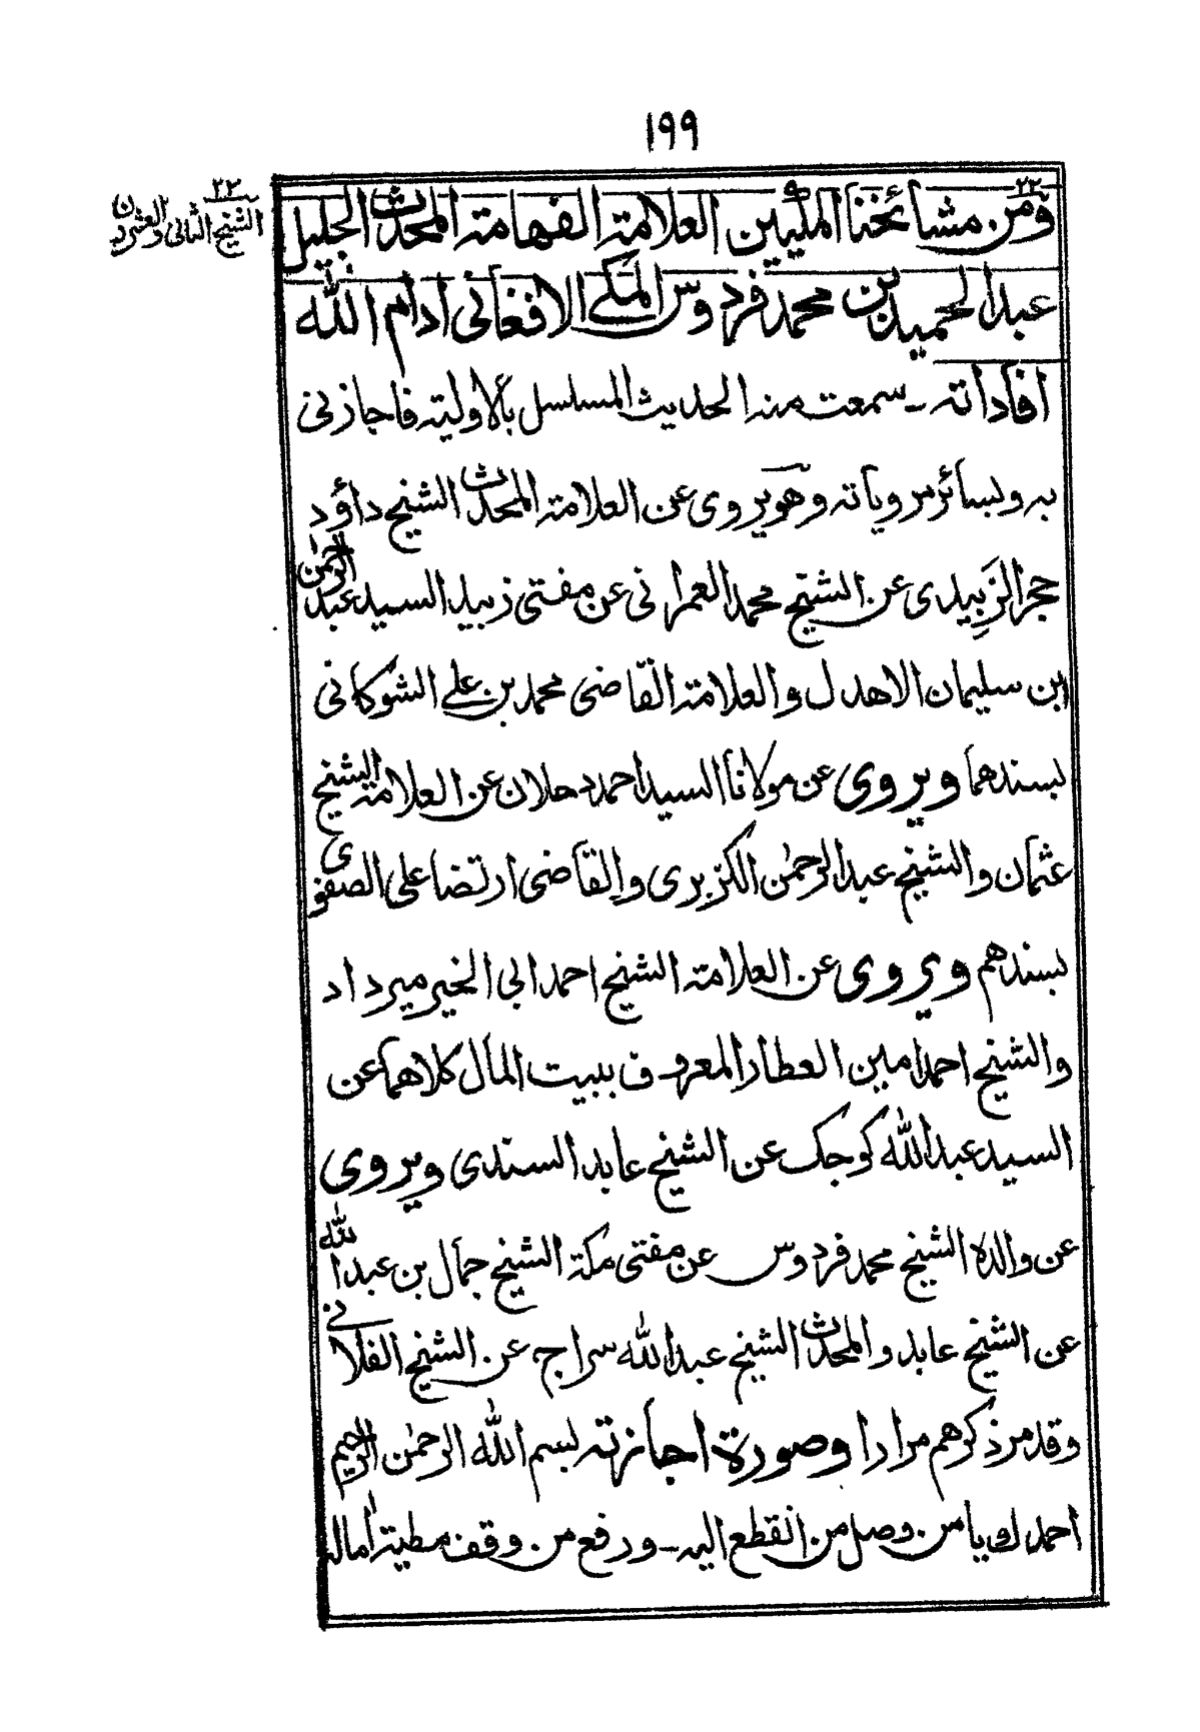 ١٩٩
٢٢
الشيخ الثاني والعشرون
٢٢
ومن مشائخنا المكيين العلامة الفهامة المحدث الجليل
عبد الحميد بن محمد فردوس المكي الافغاني ادام الله
افاداته ـ سمعت منه الحديث المسلسل بالاولية فاجازني
به وبسائر مروياته وهو يروي عن العلامة المحدث الشيخ داؤد
حجر الزَبِيدي عن الشيخ محمد العمراني عن مفتي زبيد السيد عبد الرحمن
ابن سليمان الاهدل والعلامة القاضي محمد بن علي الشوكاني
بسندهما ويروي عن مولانا السيد احمد دحلان عن العلامة الشيخ
عثمان والشيخ عبد الرحمٰن الكزبري والقاضي ارتضا علي الصفوي
بسندهم ويروي عن العلامة الشيخ احمد ابي الخير ميرداد
والشيخ احمد امين العطار المعروف ببيت المال كلاهما عن
السيد عبد الله كوجك عن الشيخ عابد السندي ويروي
عن والده الشيخ محمد فردوس عن مفتي مكة الشيخ جمال بن عبد الله
عن الشيخ عابد والمحدث الشيخ عبد الله سراج عن الشيخ الفلاني
وقد مر ذكرهم مرارا وصورة اجازته بسم الله الرحمٰن الرحيم
احمدك يا من وصل من انقطع اليه ـ ورفع من وقف مطية اٰماله